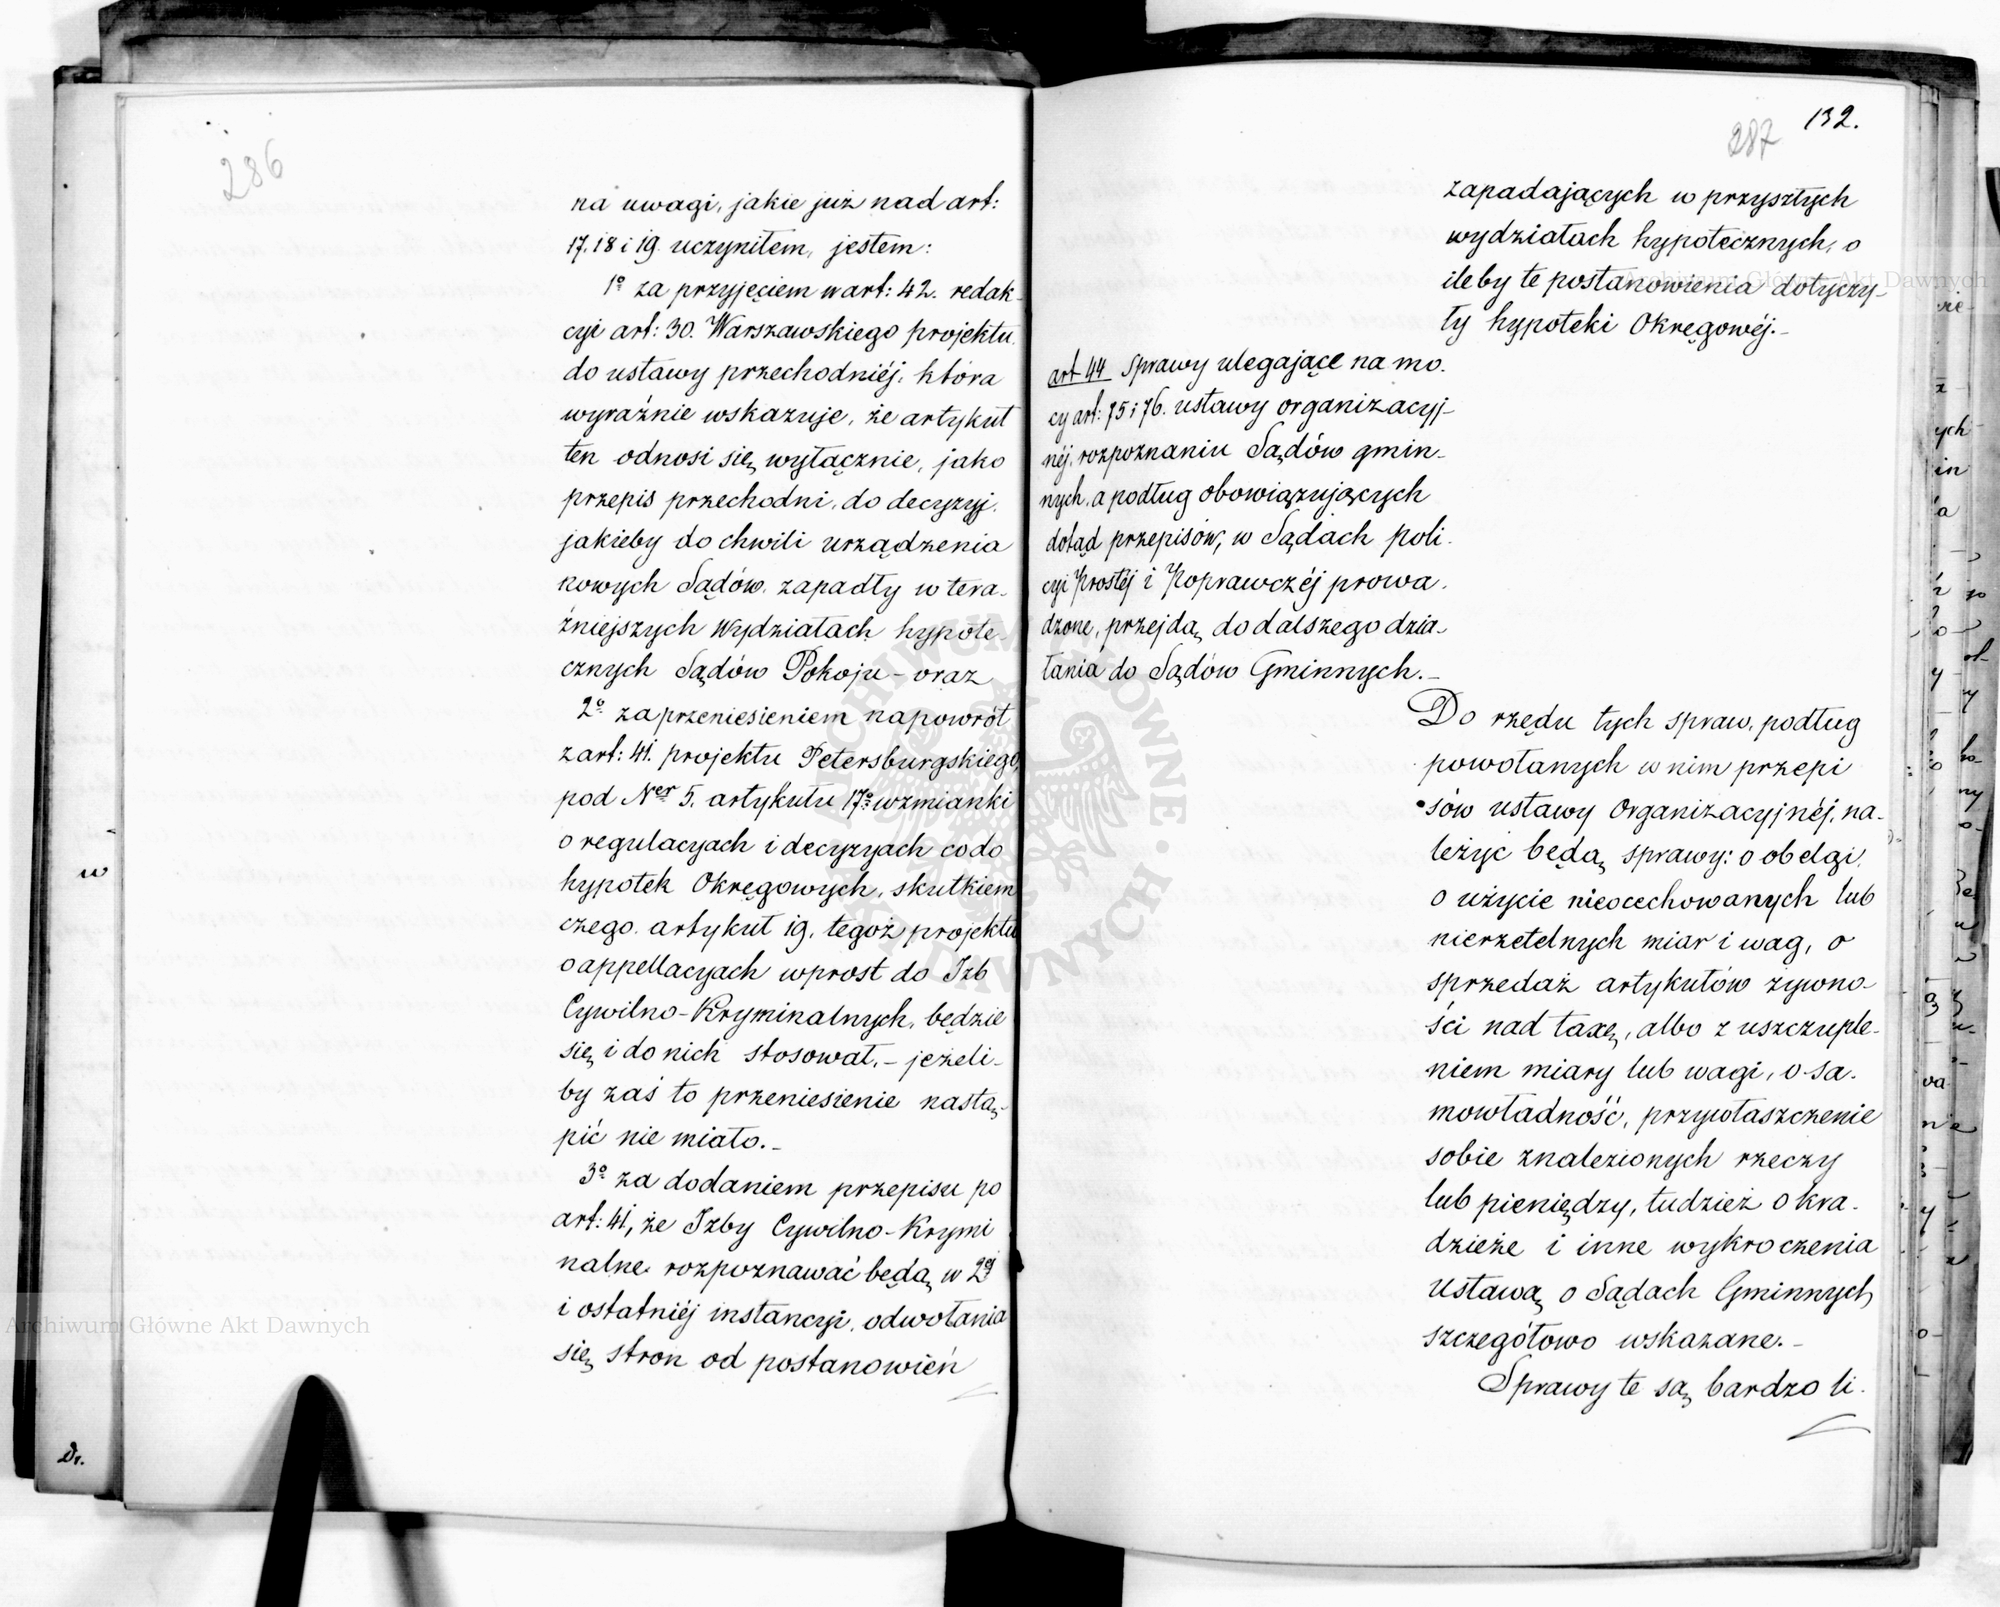 286
na uwagi, jakie już nad art:
17. 18 i 19. uczyniłem, jestem:
1º za przyjęciem w art: 42. redak-
cyi art: 30. Warszawskiego projektu
do ustawy przechodniéj, która
wyraźnie wskazuje, że artykuł
ten odnosi się wyłącznie, jako
przepis przechodni, do decyzyj,
jakieby do chwili urządzenia
nowych Sądów, zapadły w tera-
źniejszych Wydziałach hypote-
cznych Sądów Pokoju - oraz
2º za przeniesieniem napowrót
z art: 41. projektu Petersburgskiego,
pod Ner 5. artykułu 17º wzmianki
o regulacyach i decyzyach co do
hypotek Okręgowych, skutkiem
czego artykuł 19. tegoż projektu
o appellacyach wprost do Izb
Cywilno-Kryminalnych, będzie
się i do nich stosował. - jeżeli-
by zaś to przeniesienie nastą-
pić nie miało. -
3º za dodaniem przepisu po
art: 41, że Izby Cywilno-Krymi
nalne rozpoznawać będą w 2éj
i ostatniéj instancyi, odwołania
się stron od postanowień
w
Dr.
287
132.
zapadających w przyszłych
wydziałach hypotecznych, o
ileby te postanowienia dotyczy-
ły hypoteki Okręgowéj. -
art 44 Sprawy ulegające na mo-
cy art: 75 i 76. ustawy organizacyj-
néj, rozpoznaniu Sądów gmin-
nych, a podług obowiązujących
dotąd przepisów, w Sądach poli-
cyi Prostéj i Poprawczéj prowa-
dzone, przejdą do dalszego dzia-
łania do Sądów Gminnych. -
Do rzędu tych spraw, podług
powołanych w nim przepi
sów ustawy Organizacyjnéj, na-
leżyć będą sprawy: o obelgi,
o użycie nieocechowanych lub
nierzetelnych miar i wag, o
sprzedaż artykułów żywno-
ści nad taxę, albo z uszczuple-
niem miary lub wagi, o sa-
mowładność, przywłaszczenie
sobie znalezionych rzeczy
lub pieniędzy, tudzież o kra-
dzieże i inne wykroczenia
Ustawą o Sądach Gminnych
szczegółowo wskazane. -
Sprawy te są bardzo li-
Archiwum Główne Akt Dawnych
Archiwum Główne Akt Dawnych
ARCHIWUM GŁÓWNE AKT DAWNYCH